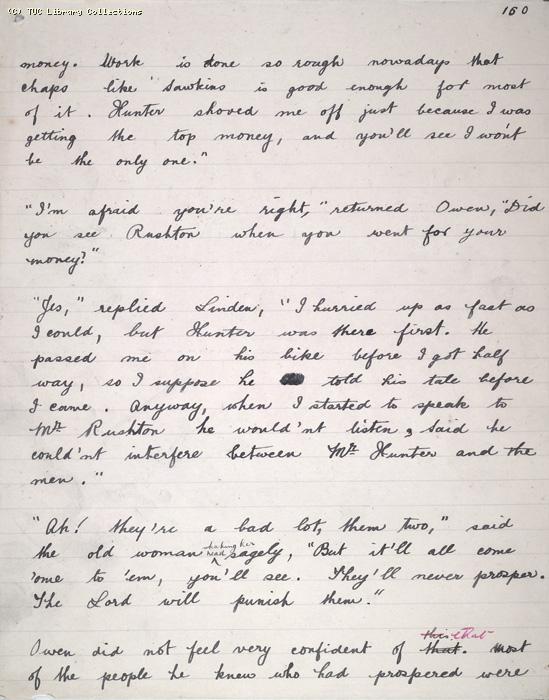 (C) TUC Library Collections
160
money. Work is done so rough nowadays that
chaps like Sawkins is good enough for most
of it. Hunter shoved me off just because I was
getting the top money, and you'll see I won't
be the only one."
"I'm afraid you're right," returned Owen, "Did
you see Rushton when you went for your
money?"
"Yes," replied Linden, "I hurried up as fast as
I could, but Hunter was there first. He
passed me on his bike before I got half
way, so I suppose he told his tale before
I came. Anyway, when I started to speak to
Mr Rushton he would'nt listen, said he
could'nt interfere between Mr Hunter and the
men."
"Ah! they're a bad lot, them two," said
the old woman shaking her head sagely, "But it'll all come
'ome to 'em, you'll see. They'll never prosper.
The Lord will punish them."
this that
Owen did not feel very confident of that. Most
of the people he knew who had prospered were